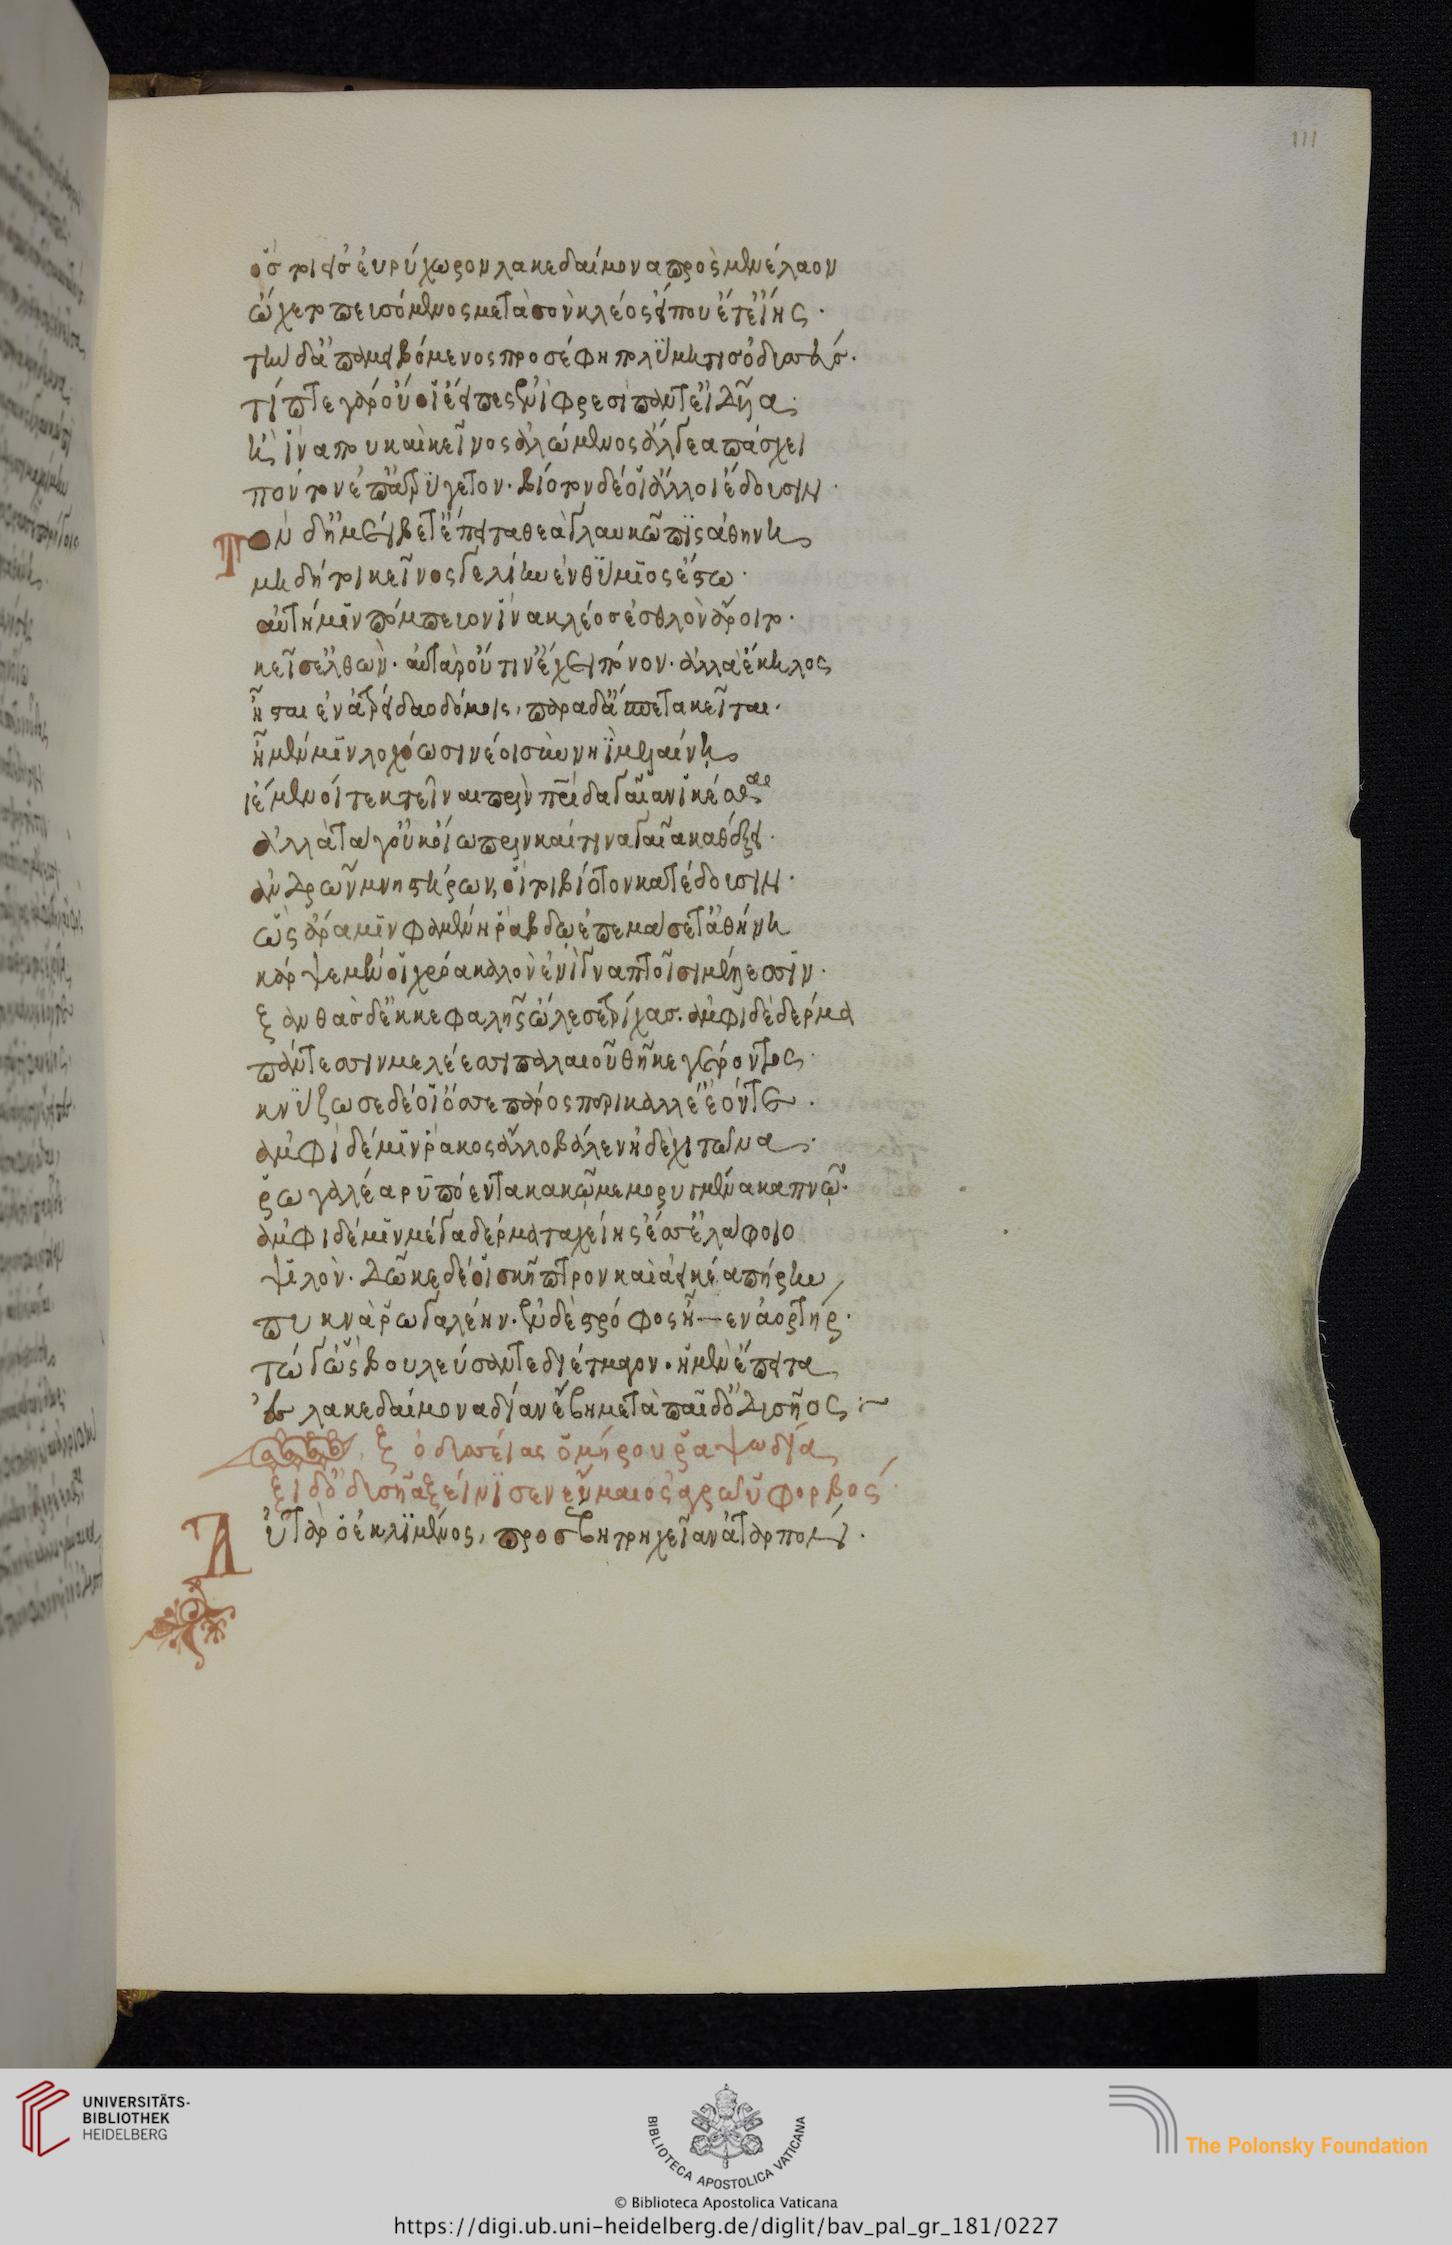 111
ὅς τοι ἐς εὐρύχωρον λακεδαίμονα πρὸς μενέλαον
ᾤχετο πευσόμενος μετὰ σὸν κλέος εἴ που ἔτ' εἴης.
τὴν δ' ἀπαμειβόμενος προσέφη πολύμητις ὀδυσσεύς.
τίπτε γάρ οὔ οἱ ἔειπες ἐνὶ φρεσὶ πάντ' εἰδυῖα.
ἦ ἵνα που καὶ κεῖνος ἀλώμενος ἄλγεα πάσχει
πόντον ἐπ' ἀτρύγετον. βίοτον δέ οἱ ἄλλοι ἔδουσιν.
Τὸν δ' ἠμείβετ' ἔπειτα θεὰ γλαυκῶπις ἀθήνη
μὴ δή τοι κεῖνος γε λίην ἐνθύμιος ἔστω.
αὐτή μιν πόμπευον ἵνα κλέος ἐσθλὸν ἄροιτο.
κεῖσ' ἐλθών. αὐτὰρ οὔτιν' ἔχει πόνον. ἀλλὰ ἕκηλος
ἧσται ἐν ἀτρείδαο δόμοις, παρὰ δ' ἄσπετα κεῖται.
ἦ μέν μιν λοχόωσι νέοι σὺν νηῒ μελαίνη
ἱέμενοι κτεῖναι πρὶν πατρίδα γαῖαν ἱκέσθαι
ἀλλὰ τά γ' οὐκ ὀΐω πρὶν καί τινα γαῖα καθέξει.
ἀνδρῶν μνηστήρων, οἵ τοι βίοτον κατέδουσιν.
ὣς ἄρα μιν φαμένη ῥάβδῳ ἐπεμάσσετ' ἀθήνη
κάρψε μέν οἱ χρόα καλὸν ἐνὶ γναπτοῖσι μέλεσσιν.
ξανθὰς δ' ἐκ κεφαλῆς ὤλεσε τρίχας. ἀμφὶ δὲ δέρμα
πάντεσσιν μελέεσσι παλαιοῦ θῆκε γέροντος.
κνύζωσε δέ οἱ ὄσσε πάρος περικαλλέ' ἐόντε.
ἀμφὶ δέ μιν ῥάκος ἄλλο βάλεν ἠδὲ χιτῶνα.
ῥωγαλέα ῥυπόεντα κακῷ μεμορυγμένα καπνῷ.
ἀμφὶ δέ μιν μέγα δέρμα ταχείης ἕσσ' ἐλάφοιο
ψιλόν. δῶκε δέ οἱ σκῆπτρον καὶ ἀεικέα πήρην
πυκνὰ ῥωγαλέην. ἐν δὲ στρόφος ἦεν ἀορτήρ.
τώ γ' ὣς βουλεύσαντε διέτμαγον. ἡ μὲν ἔπειτα
ἐς λακεδαίμονα δῖαν ἔβη μετὰ παῖδ' ὀδυσῆος :~
ξ ὀδυσσείας ὁμήρου ῥαψωδία
ξῖ δ' ὀδυσῆα ξείνισεν εὔμαιος ἀγρῷ ὑφορβός
Αὐτὰρ ὁ ἐκ λιμένος, προσέβη τρηχεῖαν ἀταρπόν.
UNIVERSITÄTS-
BIBLIOTHEK
HEIDELBERG
BIBLIOTECA APOSTOLICA VATICANA
The Polonsky Foundation
© Biblioteca Apostolica Vaticana
https://digi.ub.uni-heidelberg.de/diglit/bav_pal_gr_181/0227